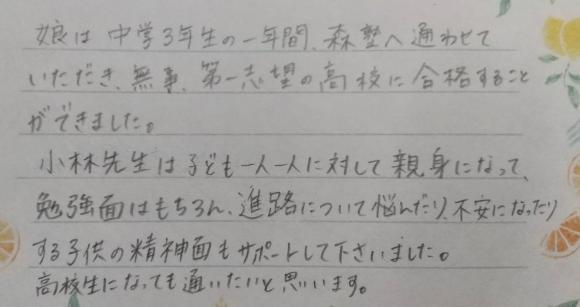 娘は中学3年生の一年間、森塾へ通わせて
いただき、無事、第一志望の高校に合格すること
ができました。
小林先生は子ども一人一人に対して親身になって、
勉強面はもちろん、進路について悩んだり、不安になったり
する子供の精神面もサポートして下さいました。
高校生になっても通いたいと思います。